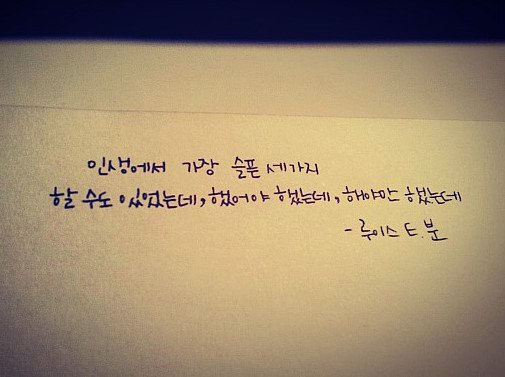 인생에서 가장 슬픈 세가지
할 수도 있었는데, 했어야 했는데, 해야만 했는데
- 루이스 E. 분